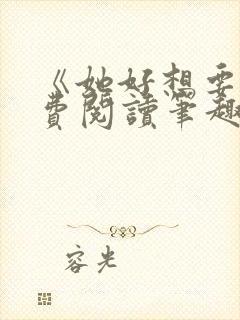 《她好想要
費閱讀筆趣
容光